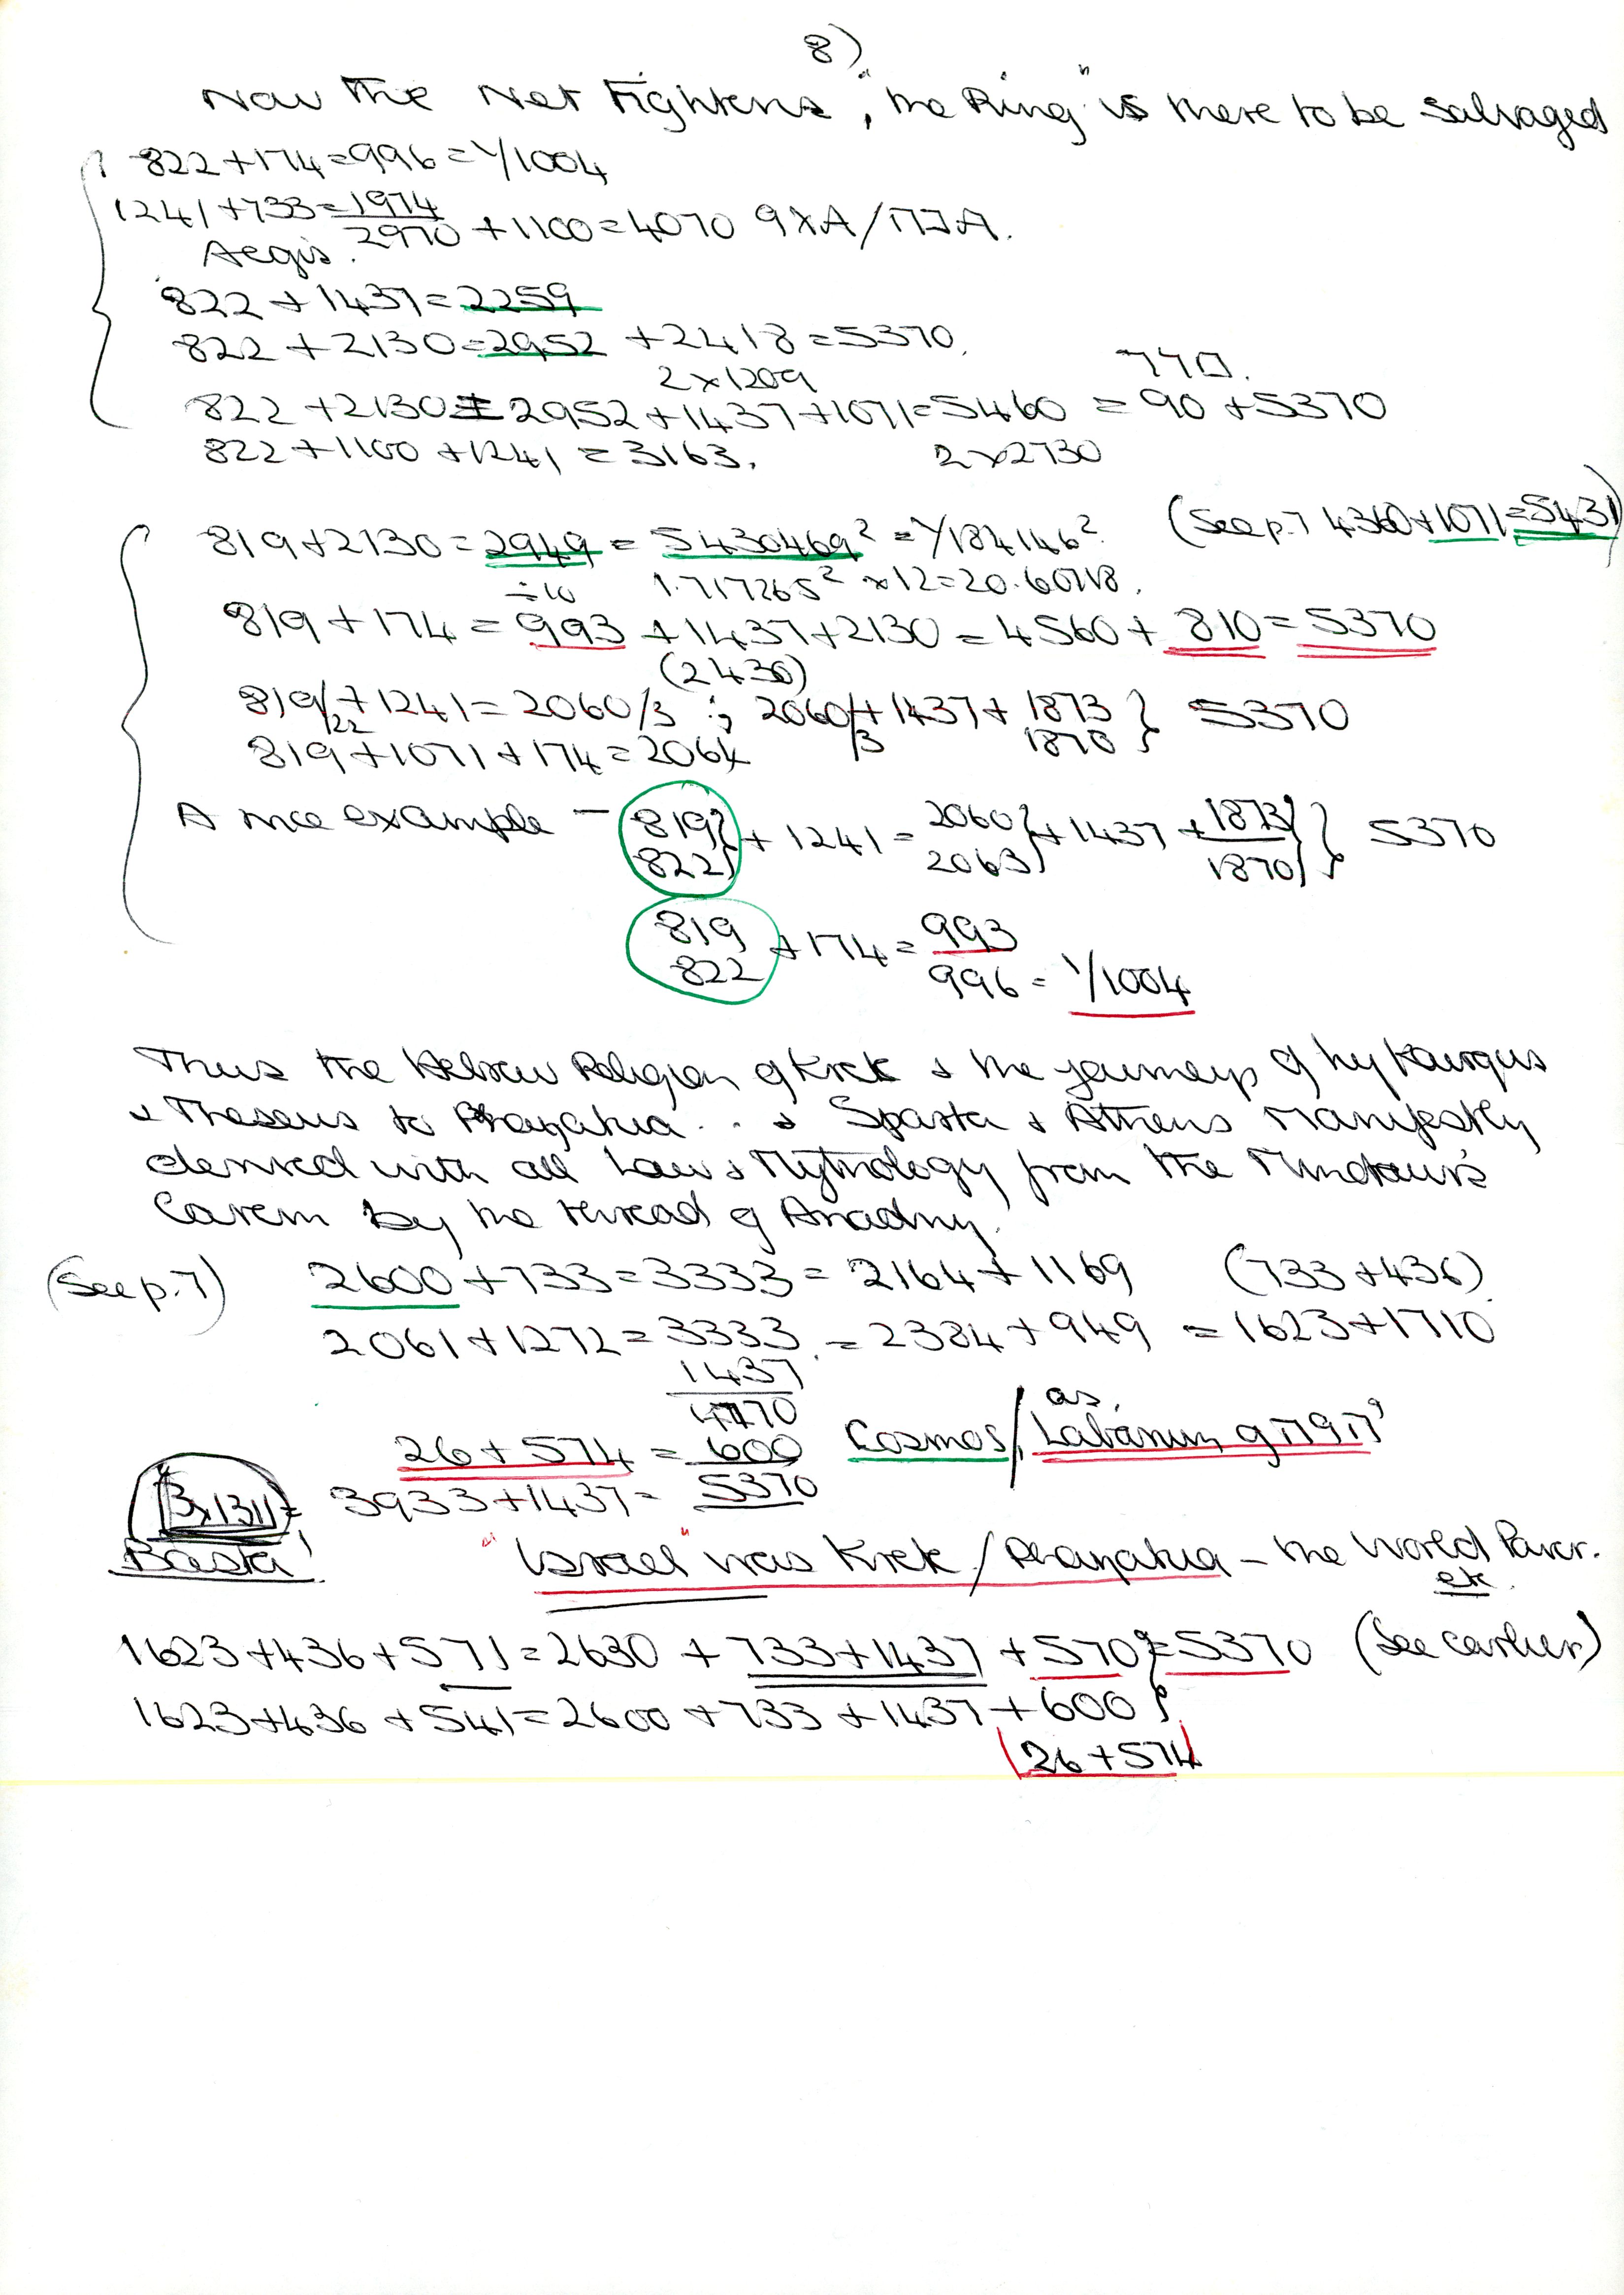 8)
Now the Net Tightens, "the Ring" is there to be salvaged
822+174=996=1/1004
1241+733=1974
2970 +1100=4070 9XA/
Aegis.
822+1437=2259
822+2130=2952 +2418=5370.
2x1209
822+2130=2952+1437+1071=5460 = 90+5370
822+1100+1241=3163. 2x2730
819+2130=2949=5430469² =1/184146² (See p.7 4360+1071=5431)
÷10 1.717265² x12=20.60718.
819+174=993+1437+2130=4560+810=5370
(2430)
819/22+1241=2060/3 ; 2060/3+1437+1873 } 5370
1870
819+1071+174=2064
A nice example - 819} + 1241 = 2060} +1437 + 1873} } 5370
822} 2063} 1870}
819 +174= 993
822 996= 1/1004
Thus the Hebrew Religion of Krek & the journeys of Lykurgus
& Theseus to .. & Sparta & Athens Manifestly
derived with all Law & Mythology from the Minotaur's
Cavern by the thread of Ariadny.
(See p.7) 2600+733=3333=2164+1169 (733+436)
2061+1272=3333.=2384+949 =1623+1710
1437
4770
26+574=600 Cosmos/ as,
3x1311= 3933+1437= 5370
Basta! "Israel" was Krek / - the World Power.
etc.
1623+436+571=2630 +733+1437 +570}=5370 (See earlier)
1623+436+541=2600+733+1437+600}
26+574